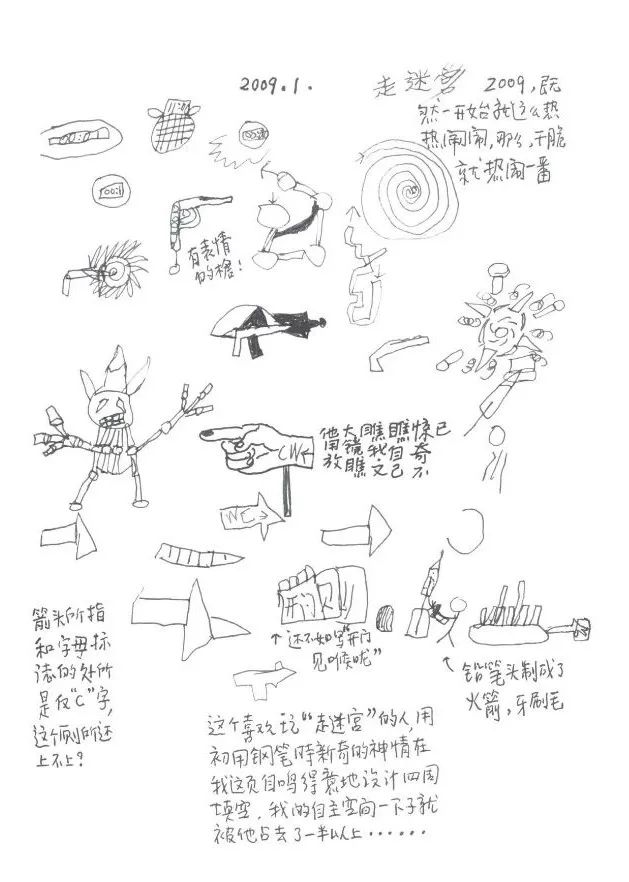 2009.1.
走迷宫
2009,既
然一开始就这么热
热闹闹,那么,干脆
就热闹一番
00:1
有表情
的槍!
他大瞧瞧惊已
用镜我自奇
放瞧文己不
CW
WC
开门见
↑还不如写“开门
见喉咙”
箭头所指
和字母标
志的处所
是反“C”字,
这个厕所还
上不上?
↑铅笔头制成了
火箭,牙刷毛
这个喜欢玩“走迷宫”的人,用
初用钢笔时新奇的神情在
我这页自鸣得意地设计四周
填空,我的自主空间一下子就
被他占去了一半以上……